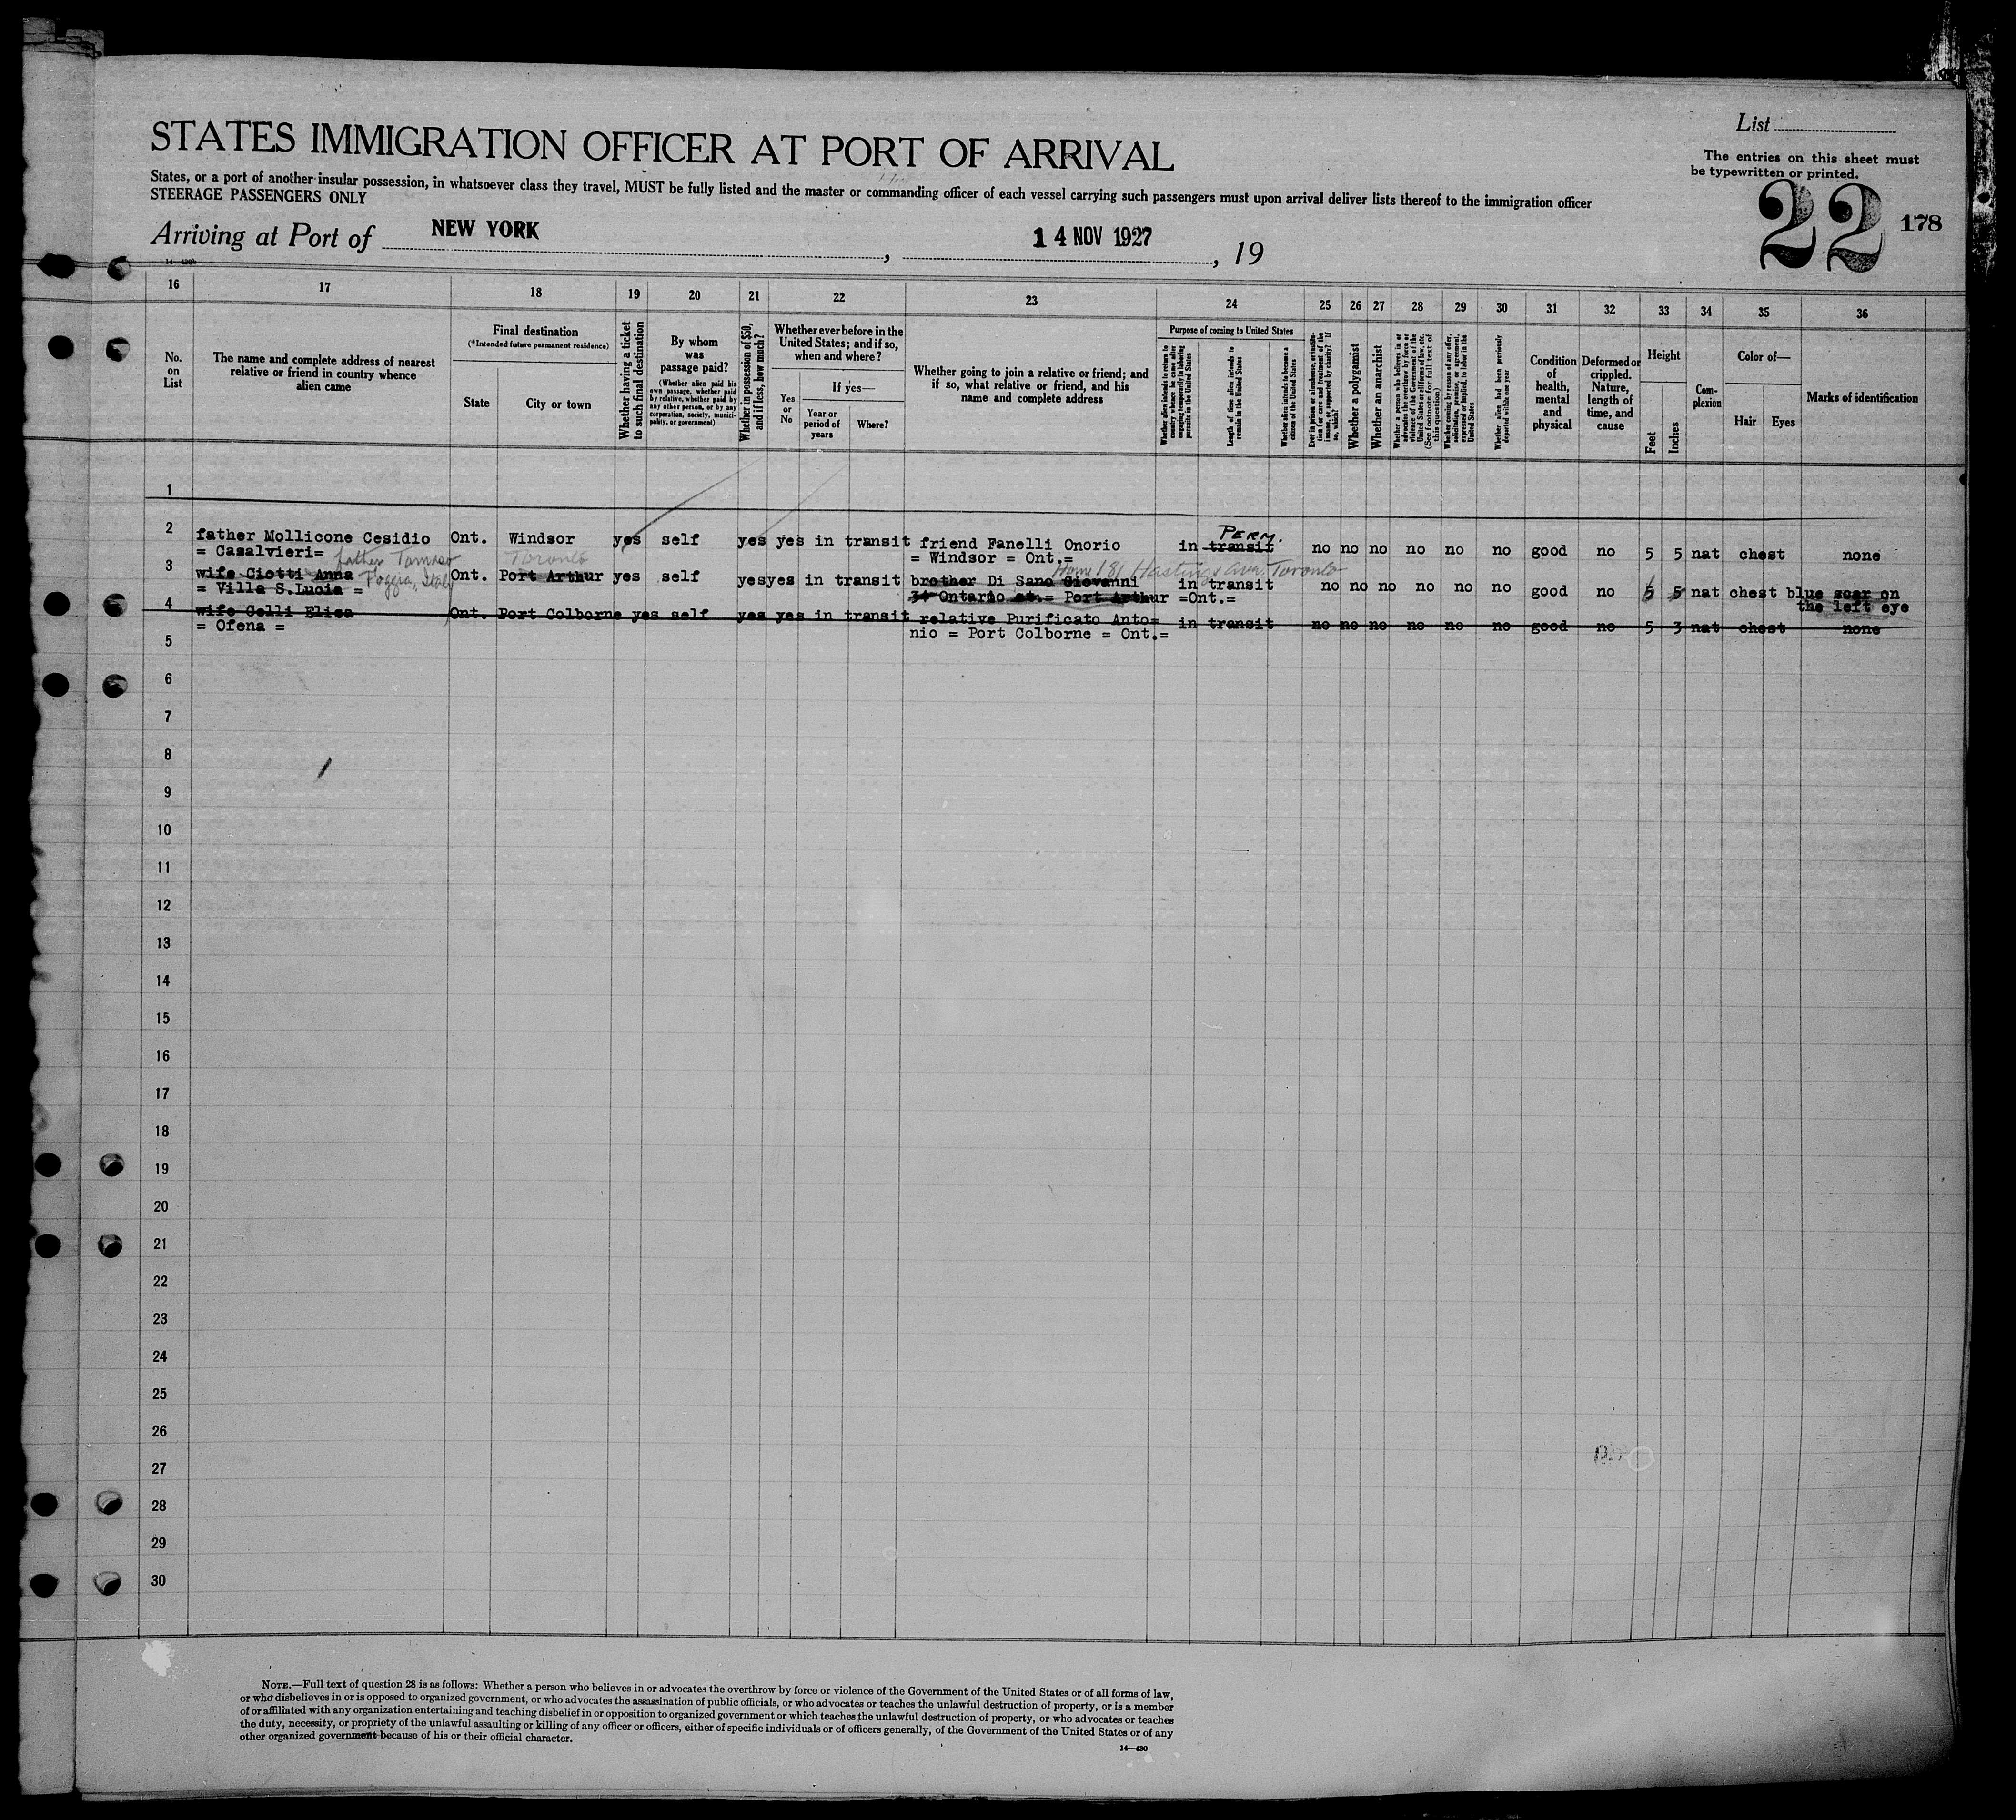 List
STATES IMMIGRATION OFFICER AT PORT OF ARRIVAL
The entries on this sheet must
be typewritten or printed.
States, or a port of another insular possession, in whatsoever class they travel, MUST be fully listed and the master or commanding officer of each vessel carrying such passengers must upon arrival deliver lists thereof to the immigration officer
STEERAGE PASSENGERS ONLY
22 178
Arriving at Port of NEW YORK , 14 NOV 1927 , 19
16 17 18 19 20 21 22 23 24 25 26 27 28 29 30 31 32 33 34 35 36
No.
on
List
The name and complete address of nearest
relative or friend in country whence
alien came
Final destination
(*Intended future permanent residence)
State
City or town
Whether having a ticket
to such final destination
By whom
was
passage paid?
(Whether alien paid his
own passage, whether paid
by relative, whether paid by
any other person, or by any
corporation, society, munici-
pality, or government)
Whether in possession of $50,
and if less, how much?
Whether ever before in the
United States; and if so,
when and where?
Yes
or
No
If yes—
Year or
period of
years
Where?
Whether going to join a relative or friend; and
if so, what relative or friend, and his
name and complete address
Purpose of coming to United States
Whether alien intends to return to
country whence he came after
engaging temporarily in laboring
pursuits in the United States
Length of time alien intends to
remain in the United States
Whether alien intends to become a
citizen of the United States
Ever in prison or almshouse, or institu-
tion for care and treatment of the
insane, or supported by charity? If
so, which?
Whether a polygamist
Whether an anarchist
Whether a person who believes in or
advocates the overthrow by force or
violence of the Government of the
United States or all forms of law, etc.
(See footnote for full text of
this question)
Whether coming by reason of any offer,
solicitation, promise, or agreement,
expressed or implied, to labor in the
United States
Whether alien had been previously
deported within one year
Condition
of
health,
mental
and
physical
Deformed or
crippled.
Nature,
length of
time, and
cause
Height
Feet
Inches
Com-
plexion
Color of—
Hair
Eyes
Marks of identification
1
PERM.
2 father Mollicone Cesidio Ont. Windsor yes self yes yes in transit friend Fanelli Onorio in transit no no no no no no good no 5 5 nat chest none
= Casalvieri= = Windsor = Ont.=
father Tomaso Toronto Home 181 Hastings Ave. Toronto
3 wife Ciotti Anna Foggia, Italy Ont. Port Arthur yes self yes yes in transit brother Di Sano Giovanni in transit no no no no no no good no 5 5 nat chest blue scar on
= Villa S.Lucia = 34 Ontario st.= Port Arthur =Ont.= the left eye
4 wife Celli Elisa Ont. Port Colborne yes self yes yes in transit relative Purificato Anto= in transit no no no no no no good no 5 3 nat chest none
= Ofena = nio = Port Colborne = Ont.=
5
6
7
8
9
10
11
12
13
14
15
16
17
18
19
20
21
22
23
24
25
26
27
28
29
30
NOTE.—Full text of question 28 is as follows: Whether a person who believes in or advocates the overthrow by force or violence of the Government of the United States or of all forms of law,
or who disbelieves in or is opposed to organized government, or who advocates the assassination of public officials, or who advocates or teaches the unlawful destruction of property, or is a member
of or affiliated with any organization entertaining and teaching disbelief in or opposition to organized government or which teaches the unlawful destruction of property, or who advocates or teaches
the duty, necessity, or propriety of the unlawful assaulting or killing of any officer or officers, either of specific individuals or of officers generally, of the Government of the United States or of any
other organized government because of his or their official character.
14—430